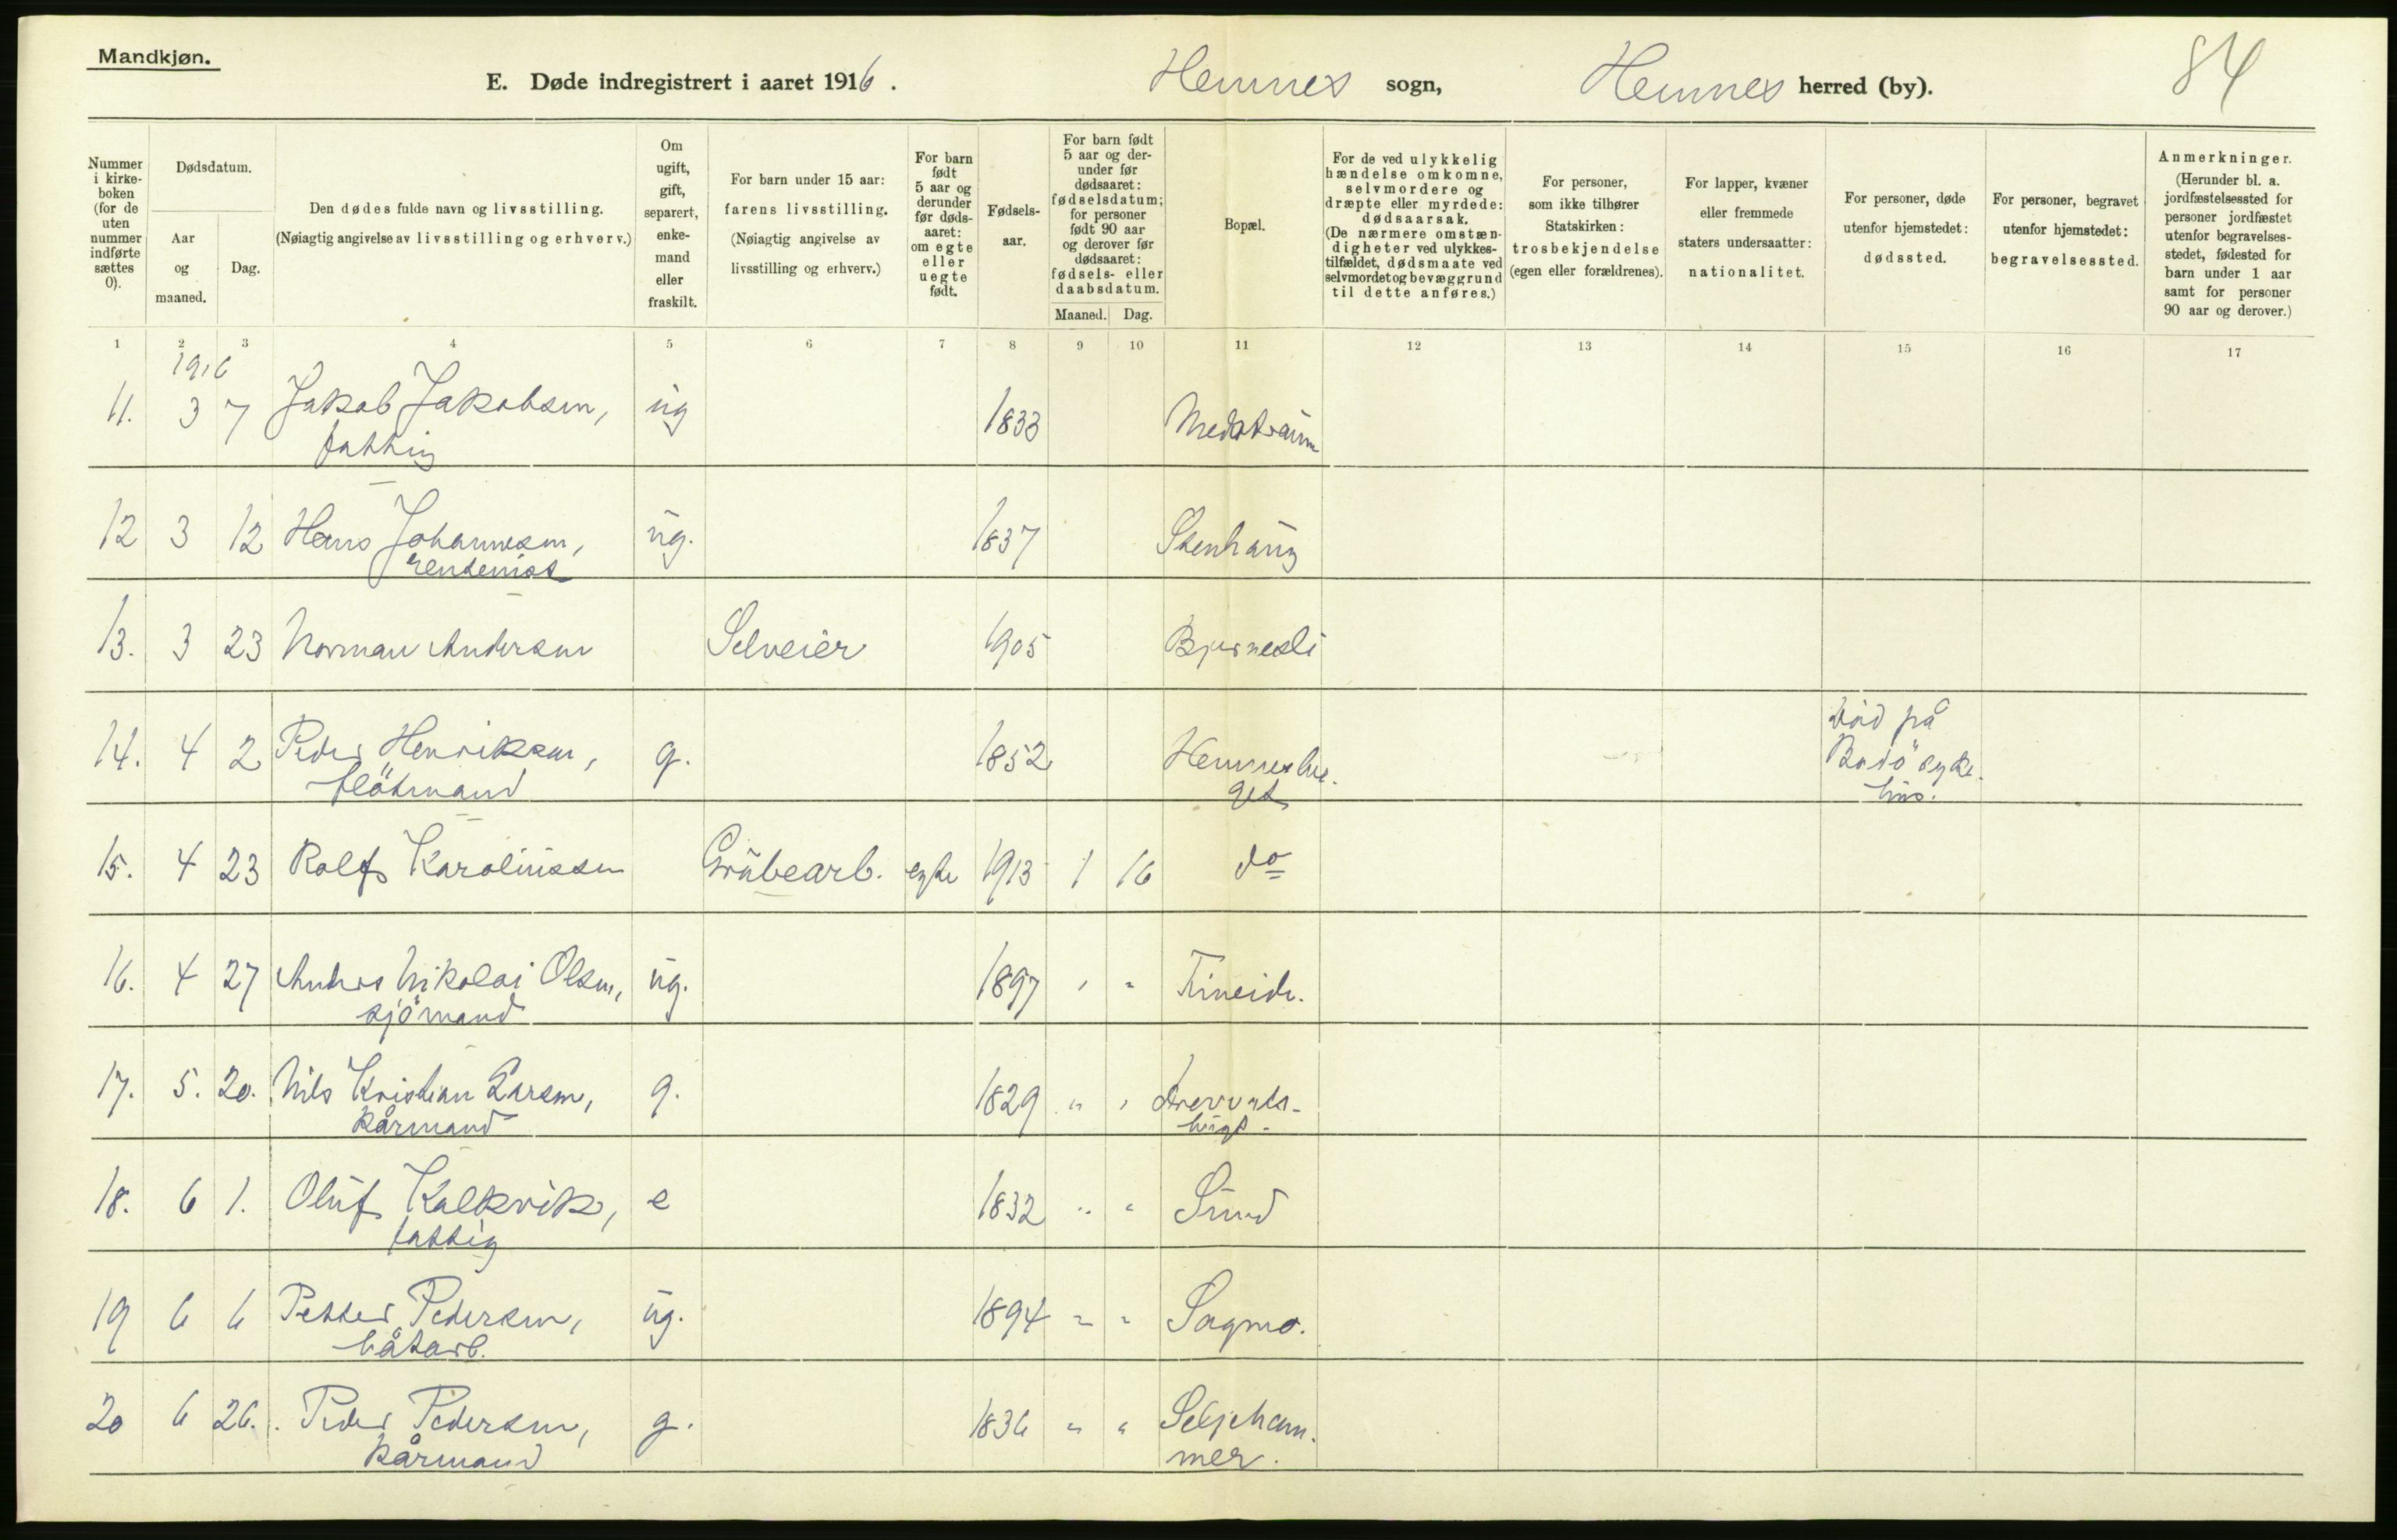 Mandkjøn.
E. Døde indregistrert i aaret 1916. Hemnes sogn, Hemnes herred (by). 84
Nummer i kirkeboken (for de uten nummer indførte sættes 0).
Dødsdatum.
Aar og maaned.
Dag.
Den dødes fulde navn og livsstilling.
(Nøiagtig angivelse av livsstilling og erhverv.)
Om ugift, gift, separert, enkemand eller fraskilt.
For barn under 15 aar: farens livsstilling. (Nøiagtig angivelse av livsstilling og erhverv.)
For barn født 5 aar og derunder før dødsaaret: om egte eller uegte født.
Fødselsaar.
For barn født 5 aar og derunder før dødsaaret: fødselsdatum; for personer født 90 aar og derover før dødsaaret: fødsels- eller daabsdatum.
Maaned. Dag.
Bopæl.
For de ved ulykkelig hændelse omkomne, selvmordere og dræpte eller myrdede: dødsaarsak. (De nærmere omstændigheter ved ulykkestilfældet, dødsmaate ved selvmordet og bevæggrund til dette anføres.)
For personer, som ikke tilhører Statskirken: trosbekjendelse (egen eller forældrenes).
For lapper, kvæner eller fremmede staters undersaatter: nationalitet.
For personer, døde utenfor hjemstedet: dødssted.
For personer, begravet utenfor hjemstedet: begravelsessted.
Anmerkninger. (Herunder bl. a. jordfæstelsessted for personer jordfæstet utenfor begravelsesstedet, fødested for barn under 1 aar samt for personer 90 aar og derover.)
1 2 3 4 5 6 7 8 9 10 11 12 13 14 15 16 17
1916
11. 3 7 Jakob Jakobsen, ug 1833
fattig
12 3 12 Hans Johannesen, ug. 1837 Stenhaug
rentenist
13. 3 23 Norman Andersen Selveier 1905 Bjørnesli
14. 4 2 Peder Henriksen, g. 1852 Hemnesber- Död på
flötmand get Bodö syke-
hus.
15. 4 23 Rolf Karoliussen Grubearb. egte 1913 1 16 do
16. 4 27 Anders Nikolai Olsen, ug. 1897 " " Fineide.
sjömand
17. 5. 20. Nils Kristian Larsen, g. 1829 " "
kårmand
18. 6 1. Oluf Kalkvik, e 1832 " " Sund
fattig
19 6 6 Petter Pedersen, ug. 1894 " " Sagmo.
båtarb.
20 6 26. Peder Pedersen, g. 1836 " " Seljeham-
kårmand mer.